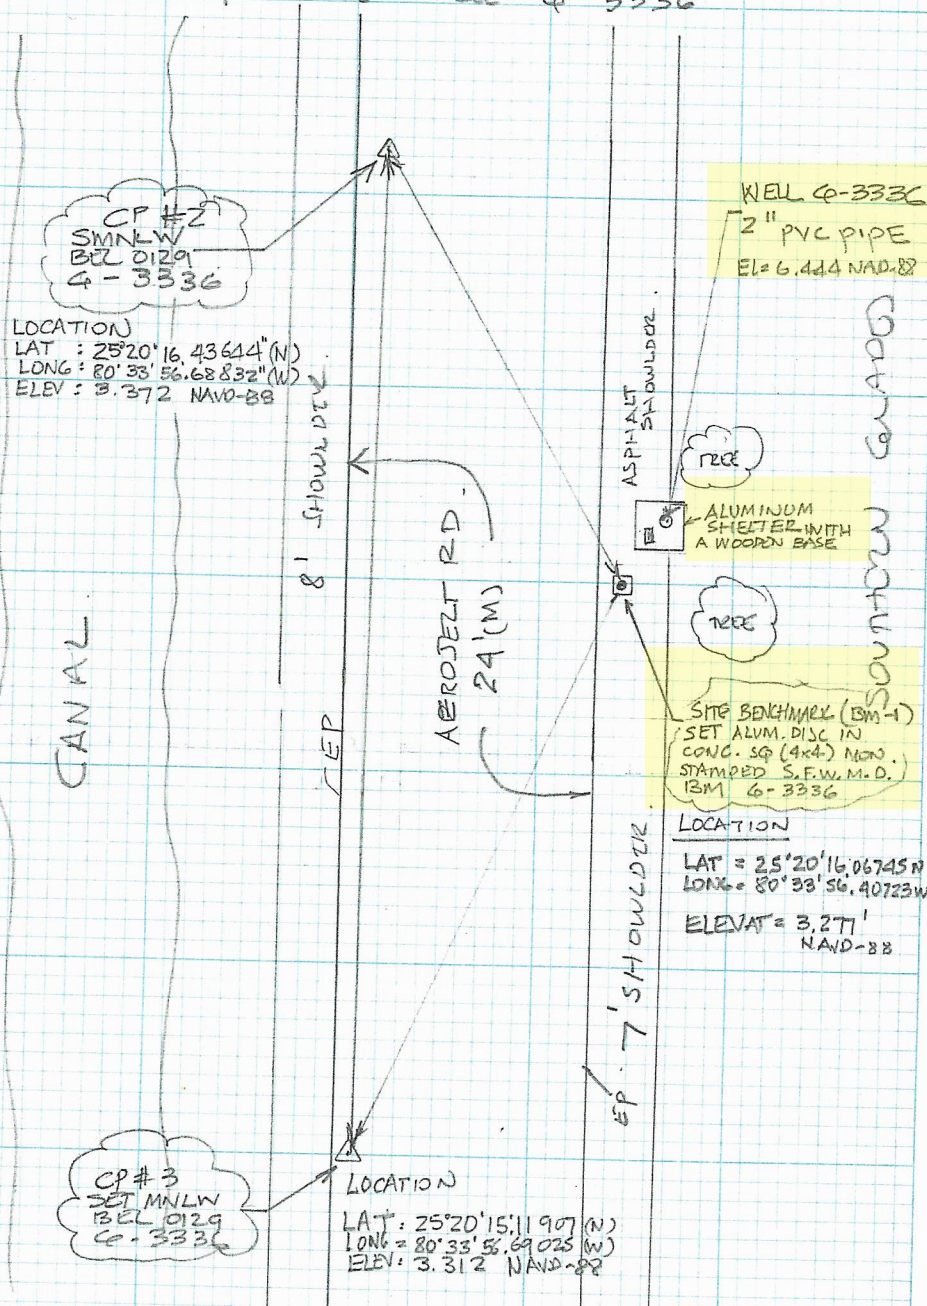 3336
CP #2
SMNLW
BEL 0129
G-3336
LOCATION
LAT : 25°20'16.43644"(N)
LONG : 80°33'56.68832"(W)
ELEV : 3.372 NAVD-88
WELL G-3336
2" PVC PIPE
EL= 6.444 NAD-88
CANAL
8' SHOWLDER
EP
AEROJELT RD.
24'(M)
ASPHALT
SHOWLDER.
TREE
ALUMINUM
SHELTER WITH
A WOODEN BASE
TREE
SOUTHERN GLADES
SITE BENCHMARK (BM-1)
SET ALUM. DISC IN
CONC. SQ (4x4) MON.
STAMPED S.F.W.M.D.
BM G-3336
LOCATION
LAT = 25°20'16.06745N
LONG = 80°33'56.40723W
ELEVAT = 3.277'
NAVD-88
EP
7' SHOWLDER.
CP # 3
SET MNLW
BEL 0129
G-3336
LOCATION
LAT : 25°20'15.11907 (N)
LONG = 80°33'56.69025 (W)
ELEV : 3.312 NAVD-88